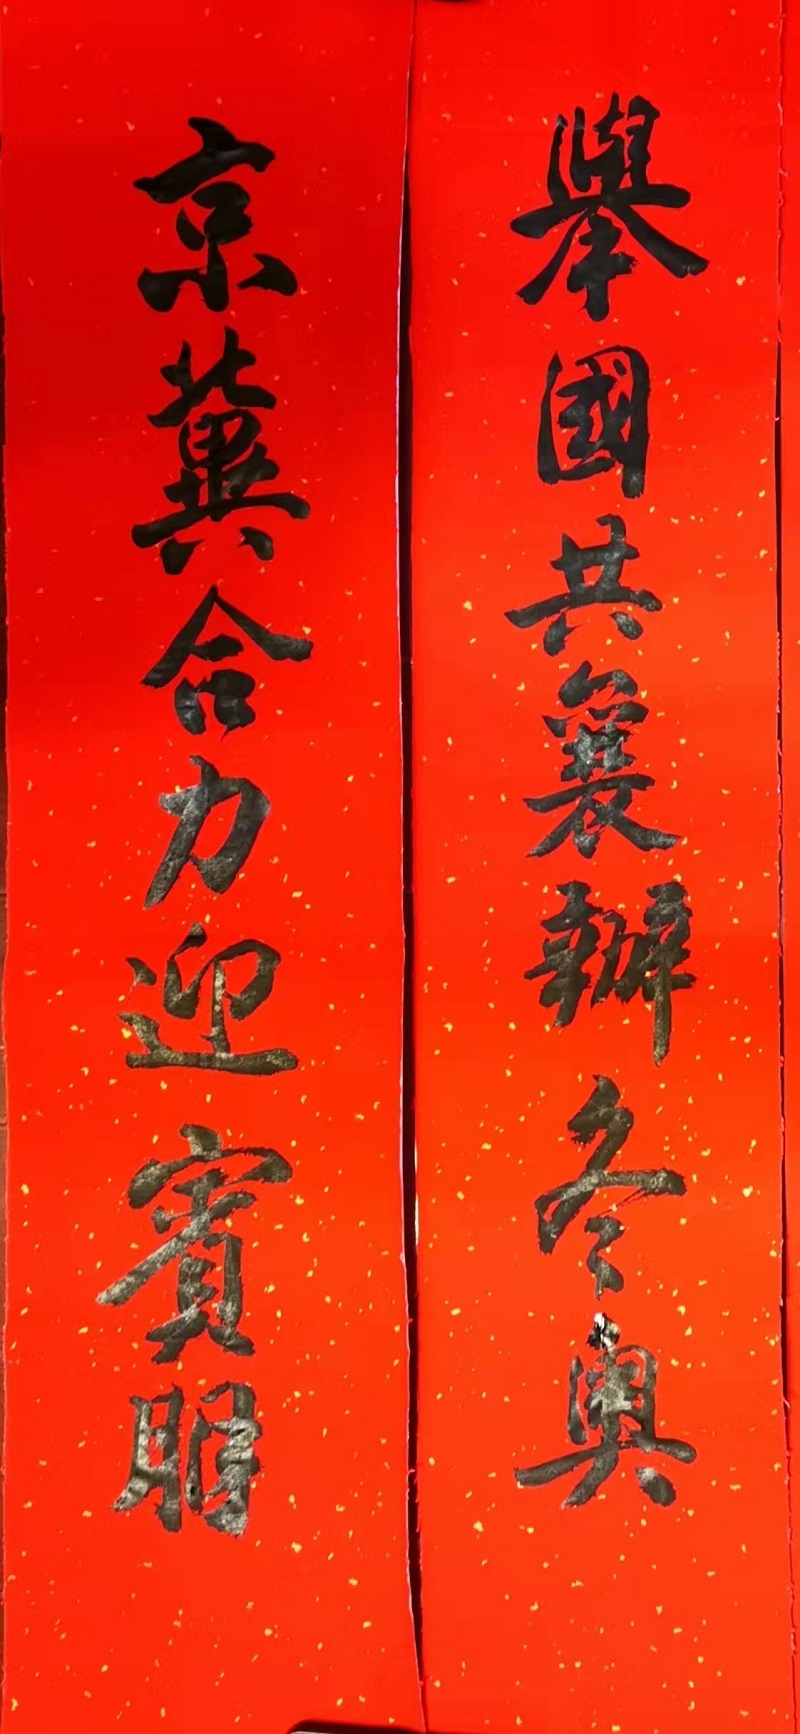 舉國共襄辦冬奧
京冀合力迎賓朋